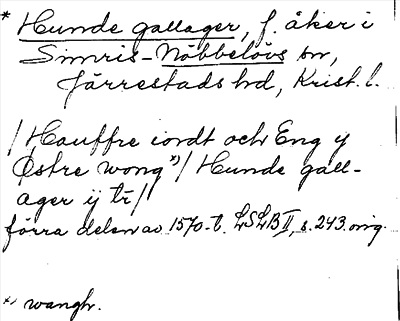 * Hunde gallager, f. åker i
Simris-Nöbbelövs sn,
Järrestads hd, Krist. l.
/ Hauffre iordt och Eng y
Østre wong *) / Hunde gall-
ager ij tr /
förra delen av 1570-t. LSLB II, s. 243. orig.
*) wangh.